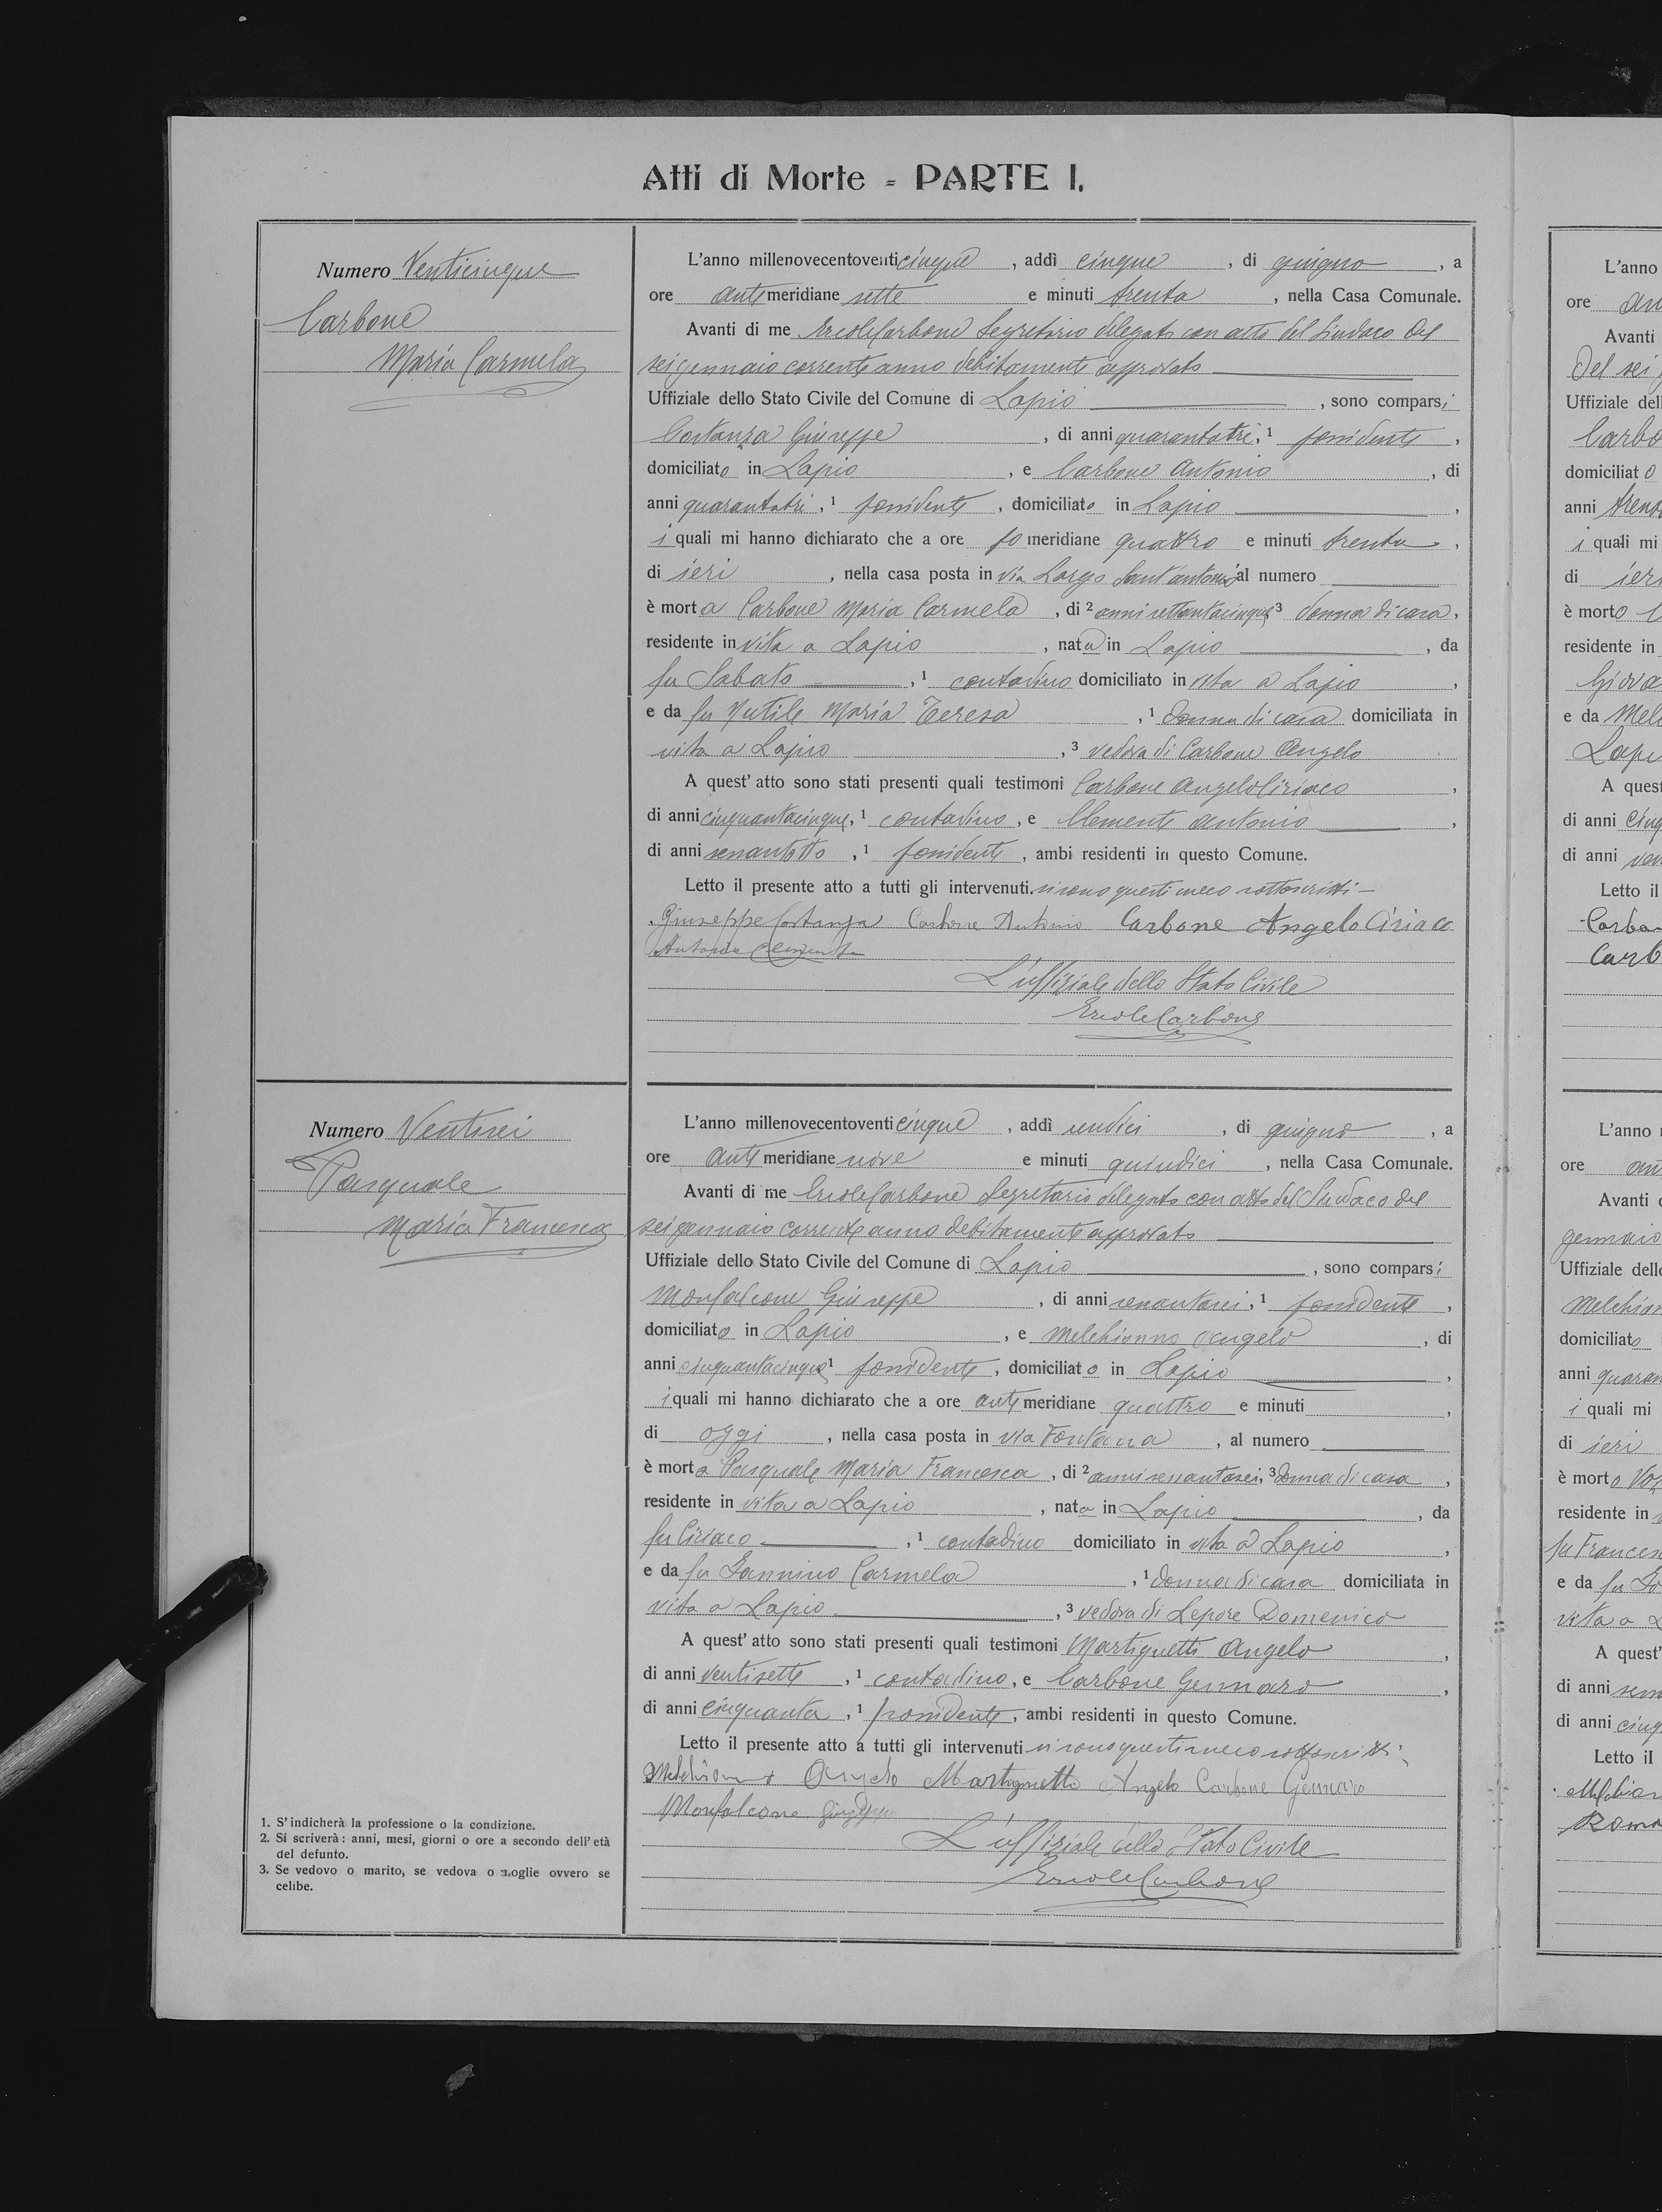 Atti di Morte = PARTE I.
Numero Venticinque
Carbone
Maria Carmela
L'anno millenovecentoventicinque, addì cinque, di giugno, a
ore antimeridiane sette e minuti trenta, nella Casa Comunale.
Avanti di me Ercole Carbone Segretario delegato con atto del Sindaco del
sei gennaio corrente anno debitamente approvato
Uffiziale dello Stato Civile del Comune di Lapio, sono comparsi
Costanza Giuseppe, di anni quarantatre, 1 possidente,
domiciliato in Lapio, e Carbone Antonio, di
anni quarantatri, 1 possidente, domiciliato in Lapio,
i quali mi hanno dichiarato che a ore pomeridiane quattro e minuti trenta,
di ieri, nella casa posta in via Largo Sant'antonio al numero
è morta Carbone Maria Carmela, di 2 anni settantacinque 3 donna di casa,
residente in vita a Lapio, nata in Lapio, da
fu Sabato, 1 contadino domiciliato in vita a Lapio,
e da fu Nutile Maria Teresa, 1 donna di casa domiciliata in
vita a Lapio, 3 vedova di Carbone Angelo
A quest' atto sono stati presenti quali testimoni Carbone Angelo Ciriaco,
di anni cinquantacinque, 1 contadino, e Clemente Antonio,
di anni sessantotto, 1 possidente, ambi residenti in questo Comune.
Letto il presente atto a tutti gli intervenuti si sono questi meco sottoscritti
Giuseppe Costanza Carbone Antonio Carbone Angelo Ciriaco
Antonio Clemente
L'uffiziale dello Stato Civile
Ercole Carbone
Numero Ventisei
Pasquale
Maria Francesca
L'anno millenovecentoventicinque, addì undici, di giugno, a
ore antimeridiane nove e minuti quindici, nella Casa Comunale.
Avanti di me Ercole Carbone Segretario delegato con atto del Sindaco del
sei gennaio corrente anno debitamente approvato
Uffiziale dello Stato Civile del Comune di Lapio, sono comparsi
Monfalcone Giuseppe, di anni sessantasei, 1 possidente,
domiciliato in Lapio, e Melchionno Angelo, di
anni cinquantacinque 1 possidente, domiciliato in Lapio,
i quali mi hanno dichiarato che a ore antimeridiane quattro e minuti,
di oggi, nella casa posta in via Fontana, al numero
è morta Pasquale Maria Francesca, di 2 anni sessantasei, 3 donna di casa,
residente in vita a Lapio, nata in Lapio, da
fu Ciriaco, 1 contadino domiciliato in vita a Lapio,
e da fu Iannino Carmela, 1 donna di casa domiciliata in
vita a Lapio, 3 vedova di Lepore Domenico
A quest' atto sono stati presenti quali testimoni Martignetti Angelo,
di anni ventisette, 1 contadino, e Carbone Gennaro,
di anni cinquanta, 1 possidente, ambi residenti in questo Comune.
Letto il presente atto a tutti gli intervenuti si sono questi meco sottoscritti
Melchionno Angelo Martignetti Angelo Carbone Gennaro
Monfalcone Giuseppe
L'uffiziale dello Stato Civile
Ercole Carbone
1. S'indicherà la professione o la condizione.
2. Si scriverà: anni, mesi, giorni o ore a secondo dell'età
del defunto.
3. Se vedovo o marito, se vedova o moglie ovvero se
celibe.
L'anno
ore
Avanti
del sei
Uffiziale
domiciliato
anni
i quali mi
di ieri
è morto
residente in
e da
A quest
di anni
di anni
Letto il
L'anno
ore
Avanti
gennaio
Uffiziale
domiciliato
anni
i quali mi
di ieri
è morto
residente in
e da fu
vita a
A quest'
di anni
di anni
Letto il